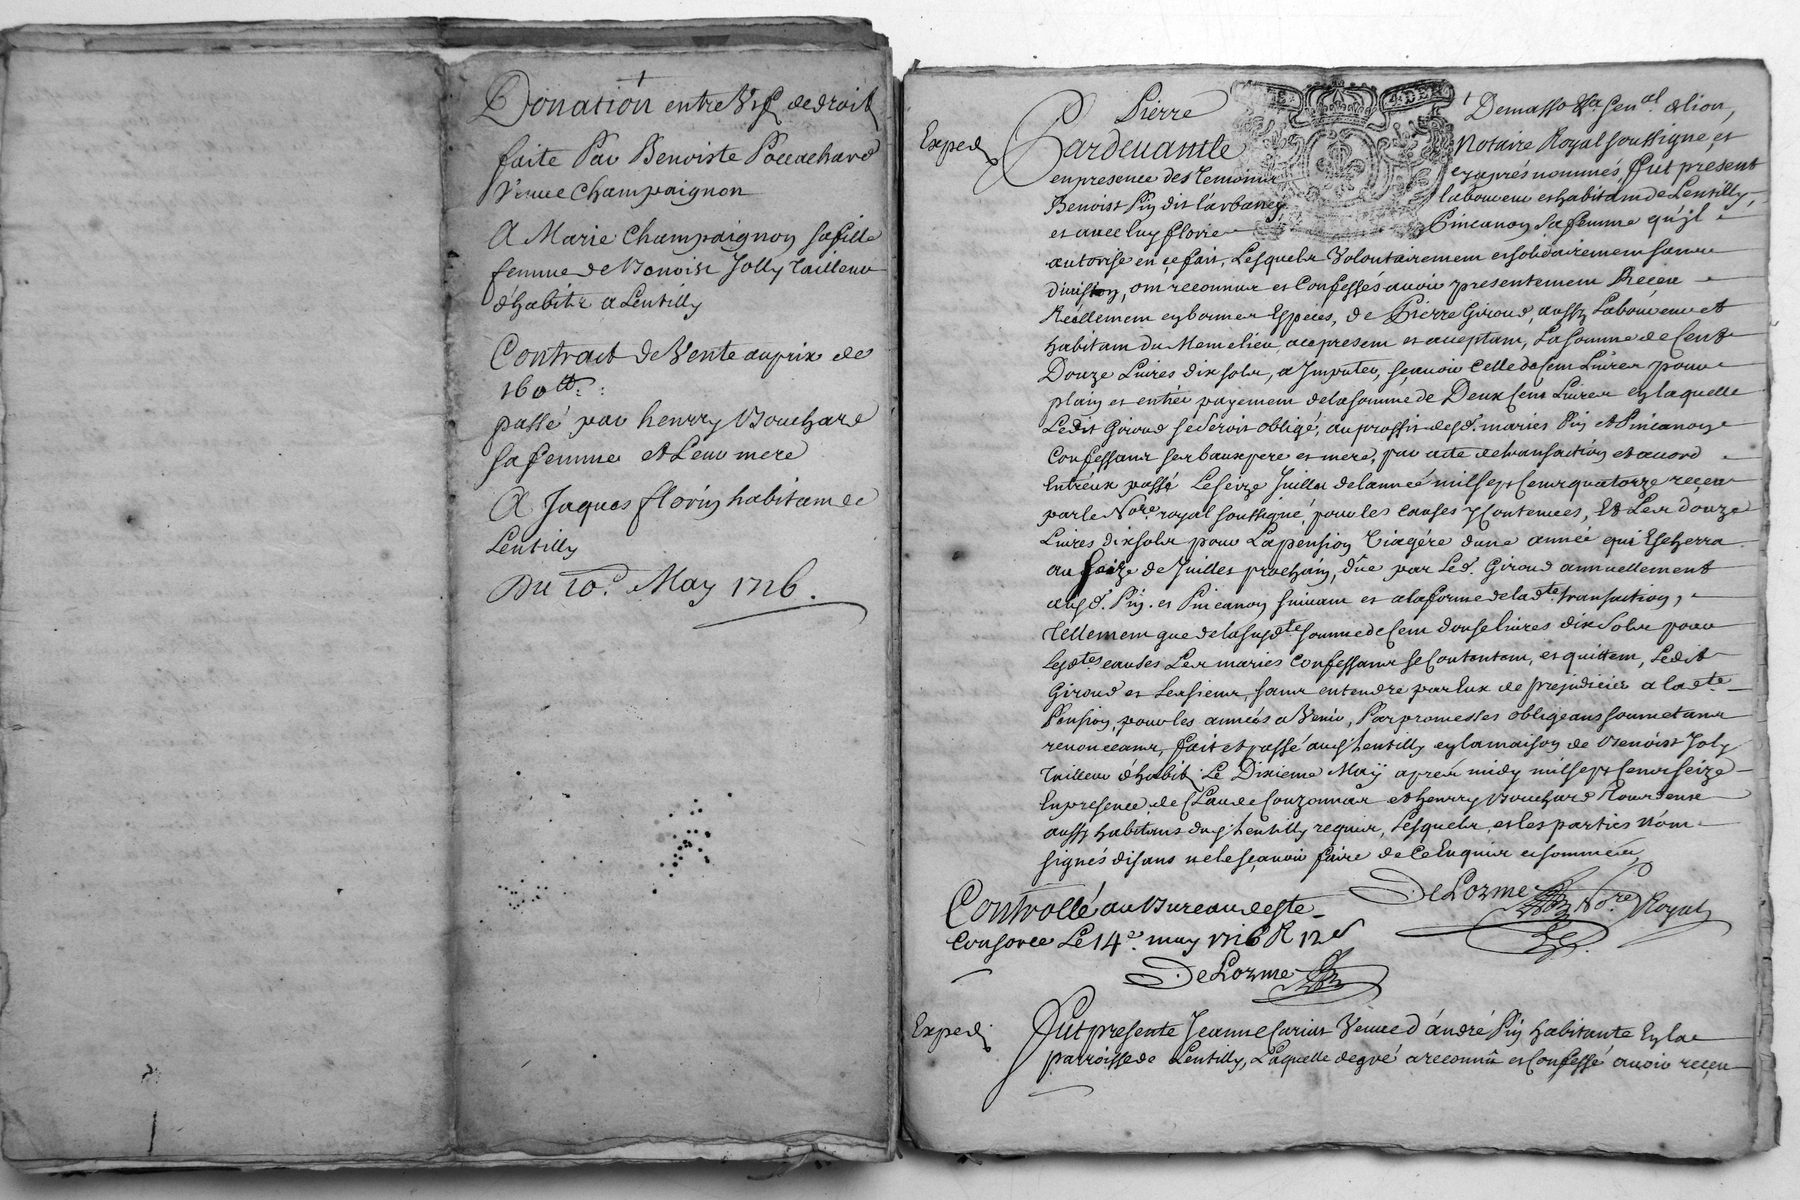 Donation entre Vifz de droit
faite Par Benoiste Poccachard
Veuve Champaignon
A Marie Champaignon sa fille
femme de Benoist Jolly Tailleur
d'habitz a Lentilly
Contract de Vente au prix de
160 ₶
passé par henrry Bouchard
sa femme et Leur mere
A Jaques florin habitant de
Lentilly
Du 10.e May 1716.
Exped.
Pierre
Par devant le
en presence des temoins
Benoist Pin dit
et avec luy florie
de lion,
Notaire Royal soussigné, et
cy aprés nommés, fut present
laboureur et habitant de Lentilly,
Pincanon sa femme qu'jl
autorise en ce fait, Lesquels Volontairement et solidairement sans
division, ont reconnus et Confessés avoir presentement Receu
Reéllement en bonnes Especes, de Pierre Giroud, aussy Laboureur et
habitant du Meme lieu, acy present et acceptant, La somme de Cent
Douze Livres dix sols, a Jmputer, sçavoir Celle de Cent Livres pour
plain et entier payement de la somme de Deux Cent Livres en laquelle
Ledit Giroud se seroit obligé, au proffit desd. mariés Pin et Pincanon
Confessants ses beaux pere et mere, par acte de transaction et acord
Entreux passé Le seize Juillet de l'année mil sept Cent quatorze receu
par le No.re royal soussigné, pour les Causes y Contenues, Et Les douze
Livres dix sols pour La pension Viagére d'une année qui Escherra
au seize de Juillet prochain, düe par Led. Giroud annuellement
ausd. Pin et Pincanon suivant et a la forme de lad.te transaction,
Tellement que de la susd.te somme de Cent douse livres dix sols pour
lesd.tes causes Les mariés Confessants se Contentent, et quittent, Ledit
Giroud et Les siens, sans entendre par Eux de prejudicier a lad.te
Pension, pour les années a Venir, Par promesses obligeans soumetans
renonceans, fait et passé aud. Lentilly en la maison de Benoist Joly
Tailleur d'habit, Le Dixieme Maÿ aprés midy mil sept Cent seize
En presence de Claude Couzonnas et henrry Bouchard
aussy habitans dud. Lentilly requis, Lesquels et les parties n'ont
signés disans ne le sçavoir faire de Ce Enquis et sommés,
DeLorme No.re Royal
Controllé au Bureau de ste
Consorce Le 14.e may 1716 R 12 s
DeLorme
Exped.
Fut presente Jeanne Veuve d'andré Pin habitante En la
parroisse de Lentilly, Laquelle de gré a reconnû et Confessé avoir receu